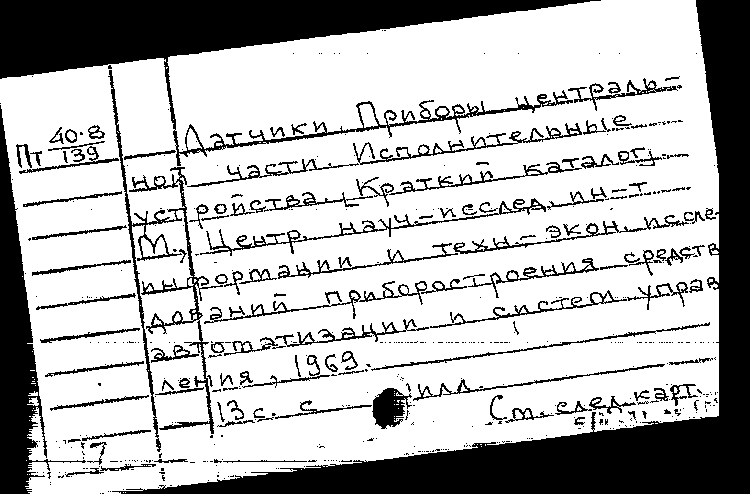 Пт 40-8/139
Датчики. Приборы централь-
ной части. Исполнительные
устройства. [Краткий каталог]
М., Центр. науч.-исслед. ин-т
информации и техн.-экон. иссле-
дований приборостроения средств
автоматизации и систем управ
ления, 1969.
13 с. с илл.
См. след. карт.
17